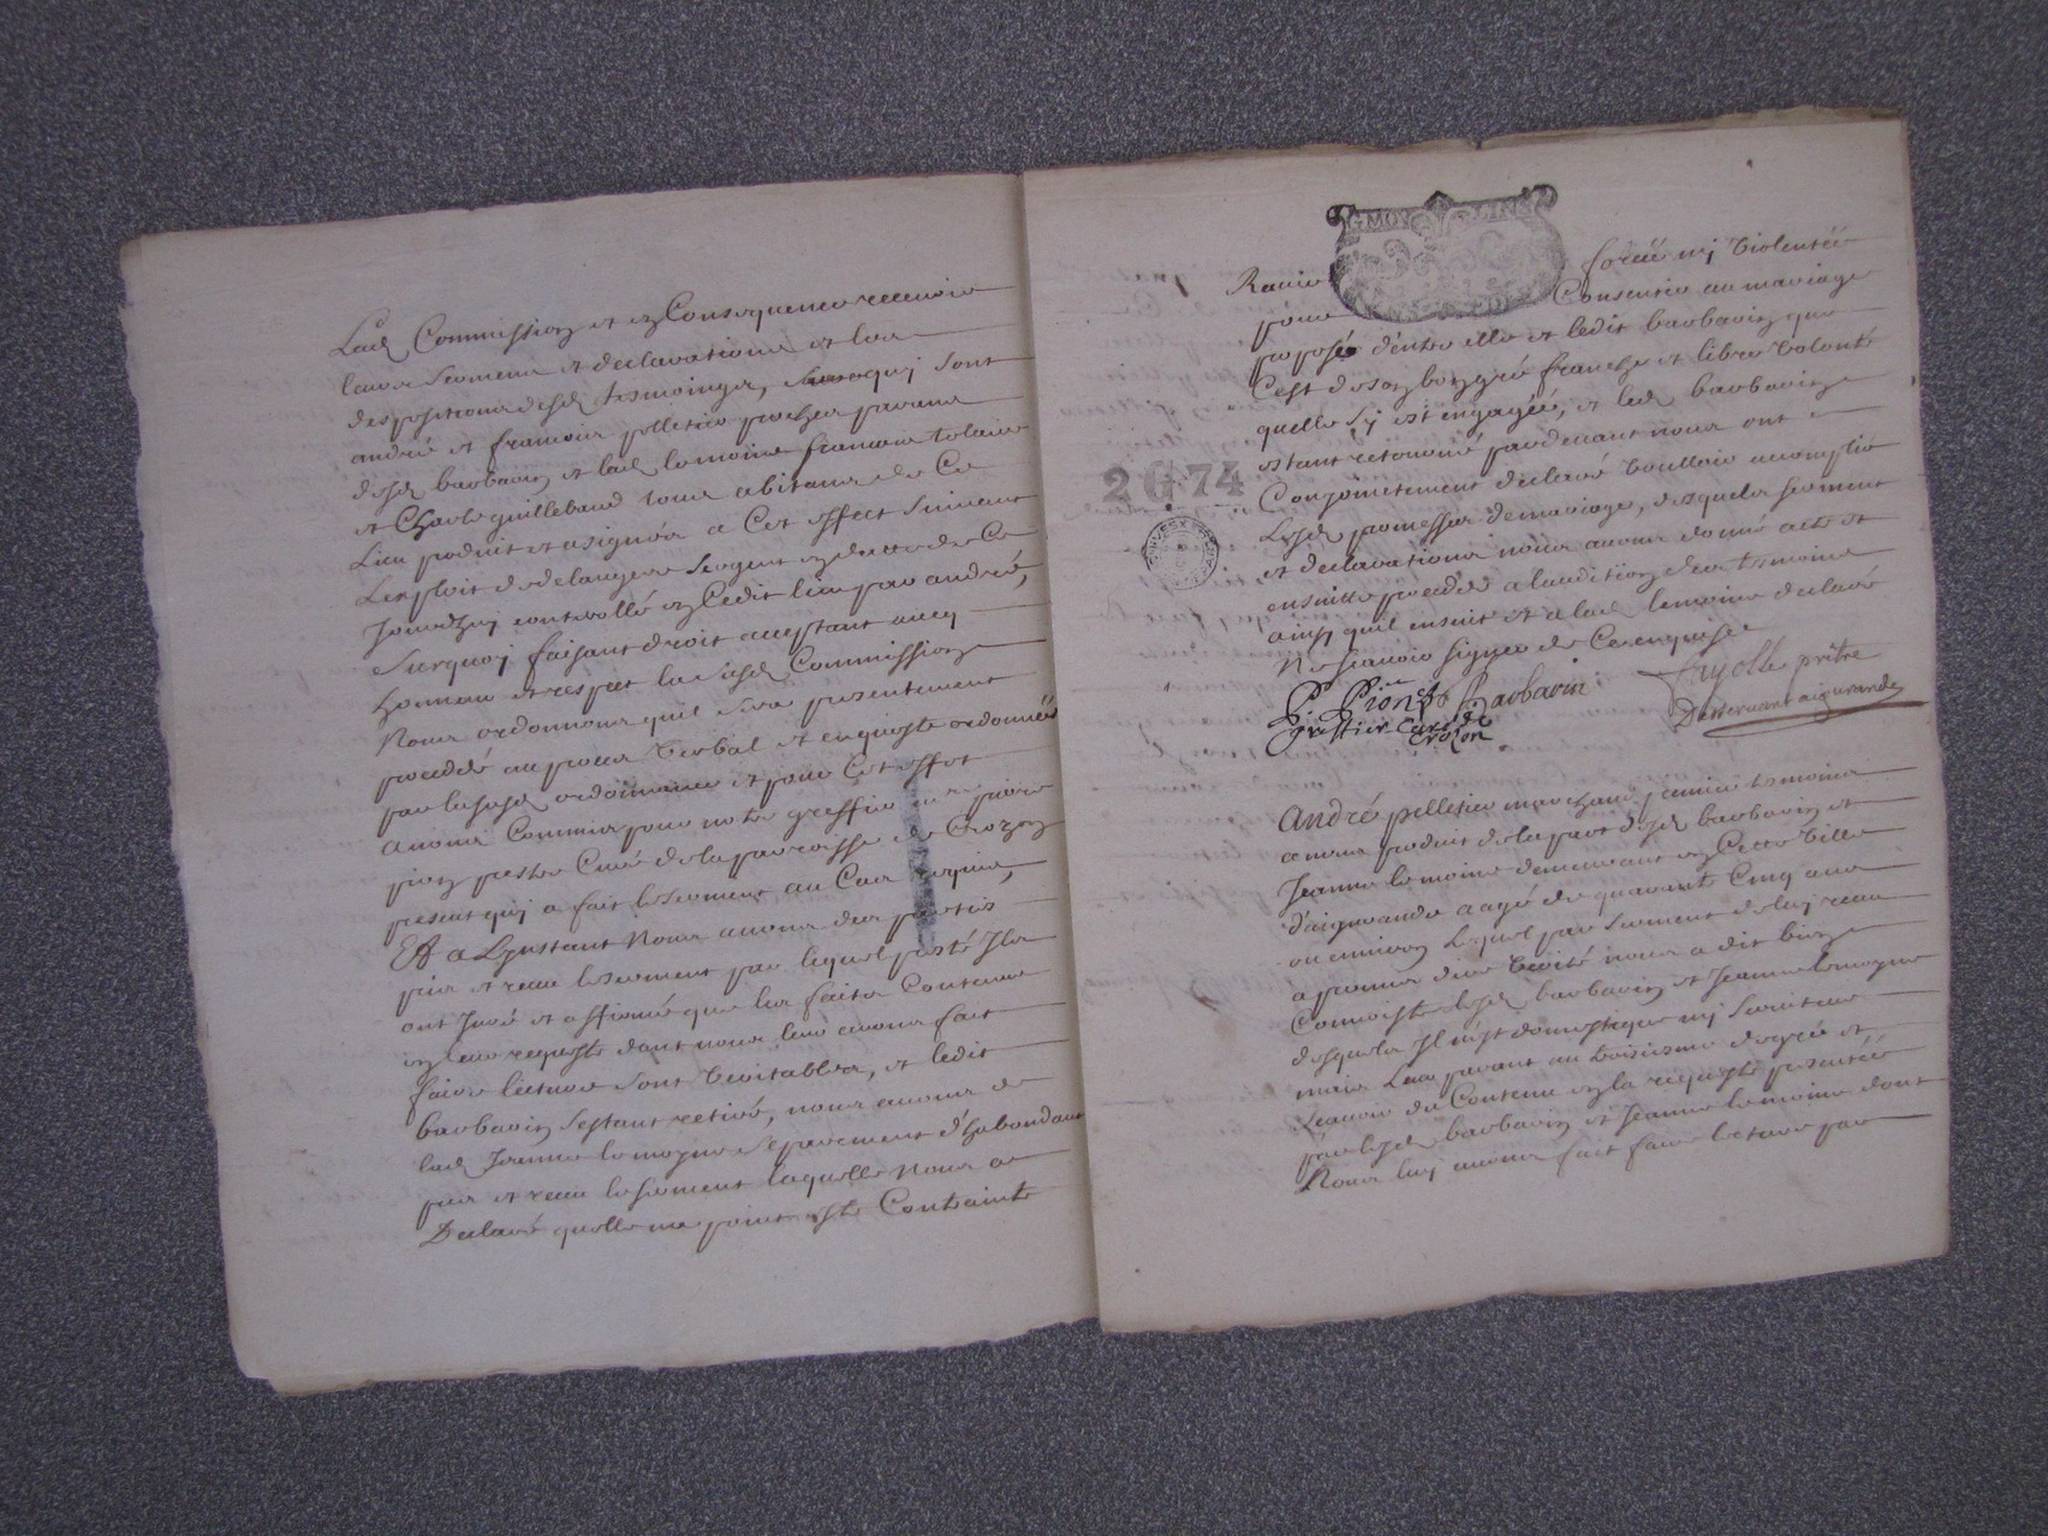 Lad Commission et en Consequence recevoir
leurs sermens et declarations et les
despositions desd tesmoinges, quj sont
andré et francois pelletier proches parans
desd barbarin et lad lemoine francois
et Charle guillebaud tous abitans de Ce
Lieu produit et asignés a Cet effect suivant
Lexploit de delangere sergent en datte de Ce
Jourdhuj controllé en Cedit lieu par andré,
Surquoj faisant droit acceptant avecq
honneur et respec la susd Commission
Nous ordonnons quil sera presentement
procedé au proces verbal et enqueste ordonnées
par lasusd ordonnance et pour Cet effet
avons Commis pour notre greffier pierre
pion prestre Curé de la parroisse de Crozon
present quj a fait le serment au Cas requis,
Et a Lynstant Nous avons des parties
pris et receu le serment par lequel presté Ils
ont Juré et affirmé que les faits Contenus
en leur requeste dont nous leur avons fait
faire lecture sont veritables, et ledit
barbarin sestant retiré, nous avons de
lad Jeanne lemoyne separement d'habondant
pris et receu le serment laquelle Nous a
Declaré quelle na point esté Contrainte
G MOVLINS
Ravie forcée nj violentée
pour Consentir au mariage
proposé d'entre elle et ledit barbarin que
C'est de son bon gré franche et libre volonté
quelle sj est engagée, et led barbarin
estant retourné pardevant nous ont
Conjoinctement declaré voulloir accomplir
Lesd promesses de mariage, desquels serment
et declarations nous avons donné acte et
ensuitte procedé a laudition des tesmoins
ainsy quil ensuit et a lad lemoine declaré
Ne scavoir signer de Ce enquise
2 G 74
P. Pion Barbarin Fayolle prêtre
greffier Curé de Desservant aigurande
Crozon
André pelletier marchand premier tesmoin
a nous produit de la part desd barbarin et
Jeanne lemoine demeurant en Cette ville
d'aigurande aagé de quarante Cinq ans
ou environ Lequel par serment de luj receu
a promis dire verité nous a dit bien
Connoistre lesd barbarin et Jeanne lemoyne
desquels Il n'est domestique nj serviteur
mais Leur parant au troisiesme degré et
scavoir du Contenu en la requeste presentée
par lesd barbarin et Jeanne lemoine dont
Nous luj avons fait faire lecture par